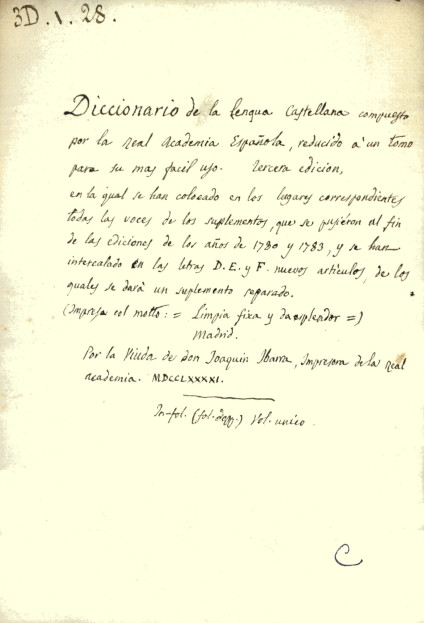 3D.1.28.
Diccionario de la lengua Castellana compuesto
por la Real Academia Española, reducido à un tomo
para su mas facil uso. Tercera edicion,
en la qual se han colocado en los lugares correspondientes
todas las voces de los suplementos, que se pusieron al fin
de las ediciones de los años de 1780 y 1783, y se han
intercalado en las letras D. E. y F. nuevos articulos, de los
quales se darà un suplemento separado.
(Impresa col motto: = Limpia fixa y da esplendor =)
Madrid.
Por la Viuda de Don Joaquin Ibarra, Impresora de la Real
Academia. MDCCLXXXXI.
In-fol. (fol. ) Vol. unico.
C